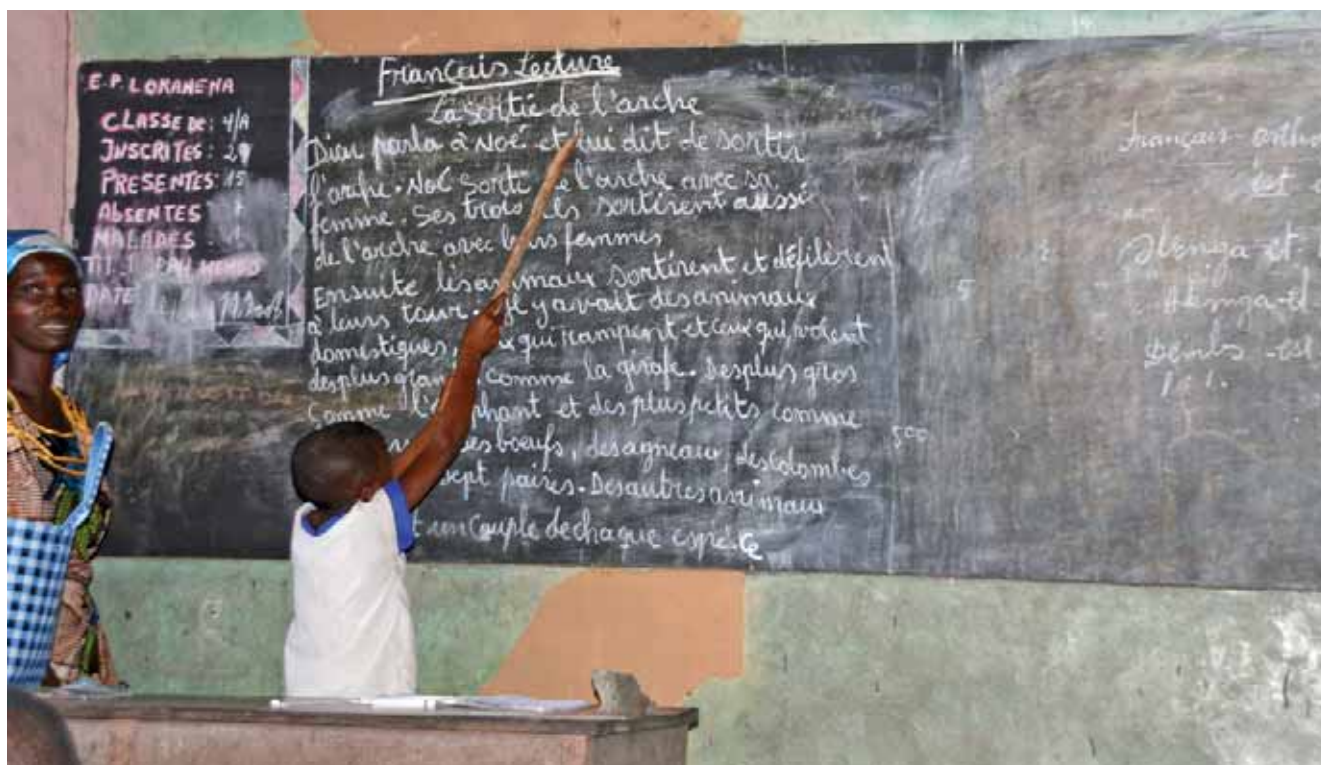 E.P. LOKAHENA
CLASSE DE: 4/A
INSCRITES: 29
PRESENTES: 15
ABSENTES
MALADES
TIT
DATE
Français Lecture
La sortie de l'arche
Dieu parla à Noé et lui dit de sortir
l'arche. Noé sorti de l'arche avec sa
femme. Ses trois fils sortirent aussi
de l'arche avec leurs femmes
Ensuite les animaux sortirent et défilèrent
à leurs tour. Il y avait des animaux
domestiques, qui rampent et ceux qui volent.
des plus gran comme la girafe. Des plus gros
Comme l'éléphant et des plus petits comme
des boeufs, des agneaux, des colombes
sept paires. Des autres animaux
un Couple de chaque espè.ce
5
500
Français - ortho
est
Alenga et
Alenga-et
Demba -est